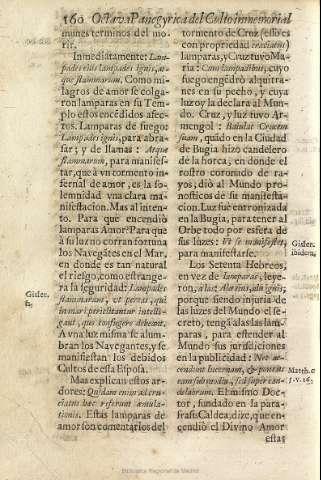 160 Octava Panegyrica del Culto inmemorial
munes terminos del mo-
rir.
Inmediatamente: Lam-
pades eius lampades ignis, at-
que flammarum. Como mi-
lagros de amor se colga-
ron lamparas en su Tem-
plo estos encēdidos afec-
tos. Lamparas de fuego:
Lampades ignis, para abra-
sar; y de llamas: Atque
flammarum, para manifes-
tar, que à vn tormento in-
fernal de amor, es la so-
lemnidad vna clara ma-
nifestacion. Mas al inten-
to. Para que encendiò
lamparas Amor? Para que
à su luz no corran fortuna
los Navegātes en el Mar,
en donde es tan natural
el riesgo, como estrange-
ra la seguridad: Lampades
flammarum, vt portus, qui
in mari periclitantur intelli-
gant, quo confugere debeant.
A vna luz misma se alum-
bran los Navegantes, y se
manifiestan los debidos
Cultos de esta Esposa.
Mas explican estos ar-
dores: Quidam enim ad cru-
ciatus hæc referunt æmula-
tionis. Estas lamparas de
amor son comentarios del
Gisler.
tormento de Cruz (esso es
con propriedad cruciatus)
lamparas, y Cruz tuvo Ma-
ria: Cum lampadibus, cuyo
fuego engēdrò alquitra-
nes en su pecho, y cuya
luz oy la declara al Mun-
do. Cruz, y luz tuvo Ar-
mengol: Baiulat Crucem
suam, quādo en la Ciudad
de Bugia hizo candelero
de la horca, en donde el
rostro coronado de ra-
yos, diò al Mundo pro-
nosticos de su manifesta-
cion. Luz fue entronizada
en la Bugia, para tener al
Orbe todo por esfera de
sus luzes: Vt se manifestet,
para manifestarse.
Gisler.
ibidem.
Los Setenta Hebreos,
en vez de lamparas, leye-
ron, alas: Alæ eius, alæ ignis;
porque siendo injuria de
las luzes del Mundo el se-
creto, tengā alas las lam-
paras, para estender al
Mundo sus jurisdiciones
en la publicidad: Nec ac-
cendunt lucernam, & ponunt
eam sub modio, sed super can-
delabrum. El mismo Doc-
tor, fundado en la para-
frasi Caldea, dize, que en-
cendiò el Divino Amor
estas
Matth. c.
5. v. 16.
Biblioteca Regional de Madrid